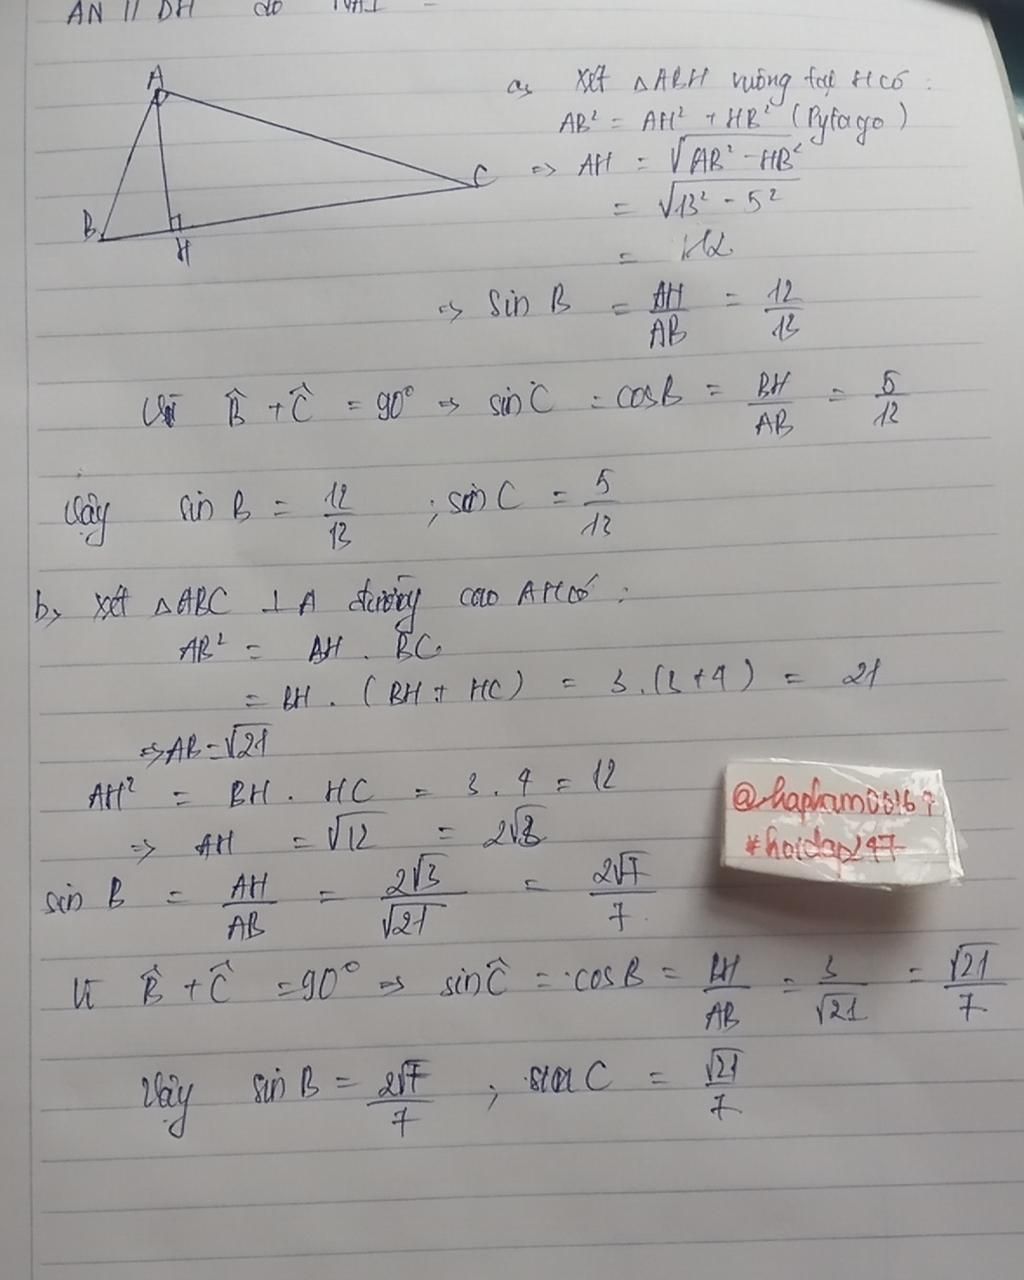 AN // DH do
A
B
H
C
a, Xét △ABH vuông tại H có :
AB² = AH² + HB² (Pytago)
=> AH = √AB² - HB²
= √13² - 5²
= 12
=> sin B = AH/AB = 12/13
Vì B̂ + Ĉ = 90° => sin C = cos B = BH/AB = 5/13
Vậy sin B = 12/13 ; sin C = 5/13
b, Xét △ABC ⊥ A đường cao AH có :
AB² = BH . BC
= BH . (BH + HC) = 3 . (3+4) = 21
=> AB = √21
AH² = BH . HC = 3 . 4 = 12
=> AH = √12 = 2√3
sin B = AH/AB = 2√3/√21 = 2√7/7
Vì B̂ + Ĉ = 90° => sin Ĉ = cos B = BH/AB = 3/√21 = √21/7
Vậy sin B = 2√7/7 ; sin C = √21/7
#hoidap247